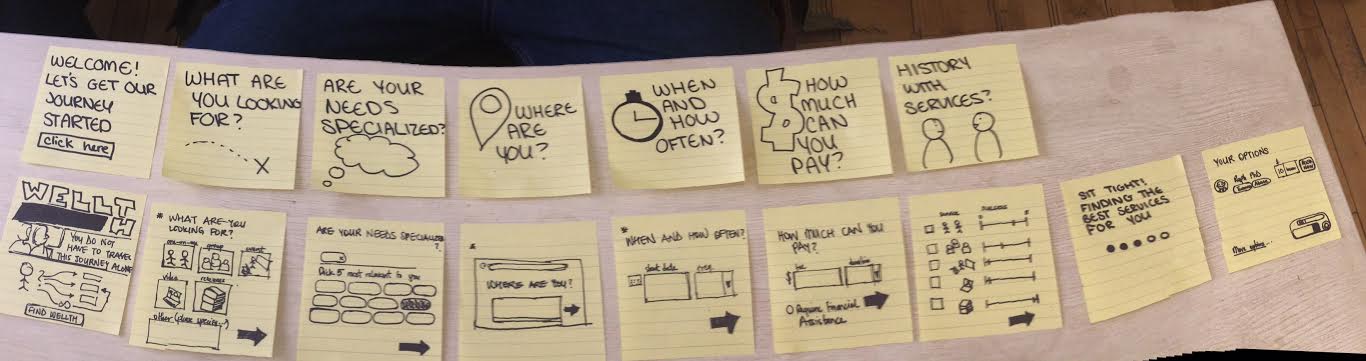 WELCOME!
LET'S GET OUR
JOURNEY
STARTED
click here
WHAT ARE
YOU LOOKING
FOR?
ARE YOUR
NEEDS
SPECIALIZED?
WHERE
ARE
YOU?
WHEN
AND
HOW
OFTEN?
$
HOW
MUCH
CAN
YOU
PAY?
HISTORY
WITH
SERVICES?
WELLTH
YOU DO NOT
HAVE TO TRAVEL
THIS JOURNEY ALONE
FIND WELLTH
* WHAT ARE YOU
LOOKING FOR?
one-on-one
group
event
video
reference
other (please specify...)
ARE YOUR NEEDS SPECIALIZED
?
x
Pick 5 most relevant to you
*
WHERE ARE YOU?
* WHEN AND HOW OFTEN?
start date
freq.
HOW MUCH CAN YOU
PAY?
$
Require Financial
Assistance
SERVICE
SUCCESS
SIT TIGHT!
FINDING THE
BEST SERVICES
FOR YOU
YOUR OPTIONS
10
More options...